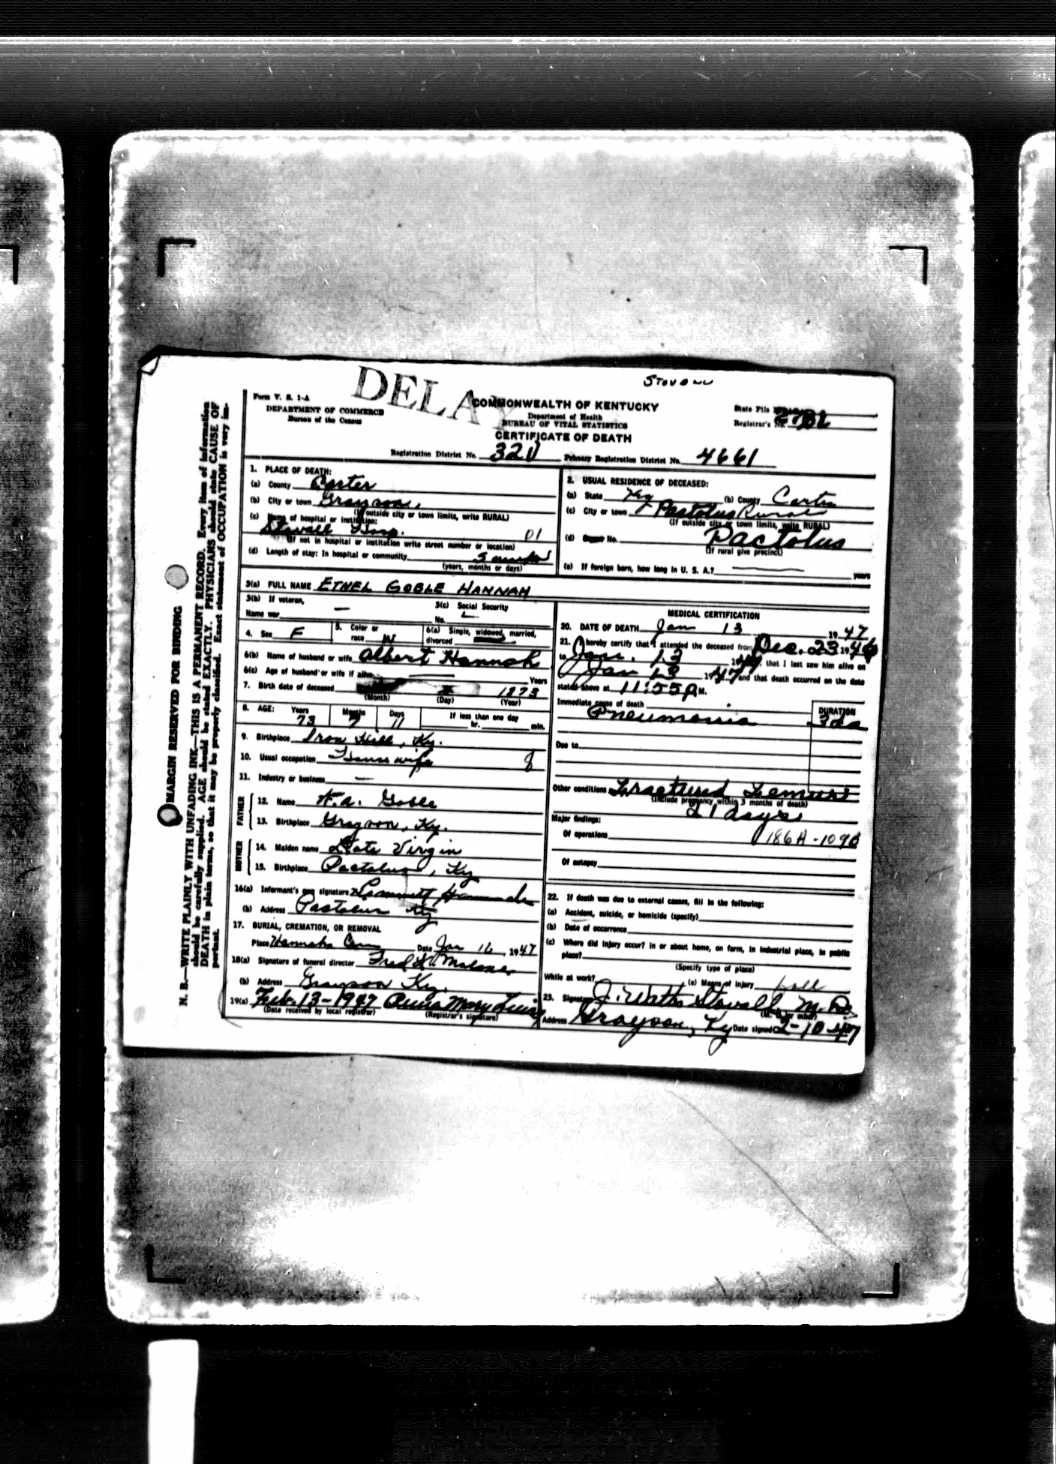 STOVALL
DELAY
Form V. S. 1-A
DEPARTMENT OF COMMERCE
Bureau of the Census
COMMONWEALTH OF KENTUCKY
Department of Health
BUREAU OF VITAL STATISTICS
CERTIFICATE OF DEATH
State File
Registrar's No.
Registration District No. 320 Primary Registration District No. 4661
1. PLACE OF DEATH:
(a) County Carter
(b) City or town Grayson,
(If outside city or town limits, write RURAL)
(c) Name of hospital or institution:
Stovall Hosp. 01
(If not in hospital or institution write street number or location)
(d) Length of stay: In hospital or community
(years, months or days)
2. USUAL RESIDENCE OF DECEASED:
(a) State Ky (b) County Carter
(c) City or town Pactolus Rural
(If outside city or town limits, write RURAL)
(d) No. Pactolus
(If rural give precinct)
(e) If foreign born, how long in U. S. A.? years
3(a) FULL NAME ETHEL GOBLE HANNAH
3(b) If veteran,
Name war
3(c) Social Security
No.
4. Sex F
5. Color or race W
6(a) Single, widowed, married, divorced
6(b) Name of husband or wife Albert Hannah
6(c) Age of husband or wife if alive Years
7. Birth date of deceased 1873
(Month) (Day) (Year)
8. AGE: Years Months Days If less than one day
73 7 11 hr. min.
9. Birthplace Iron Hill, Ky.
10. Usual occupation House wife
11. Industry or business
FATHER
12. Name W.A. Goble
13. Birthplace Grayson, Ky.
MOTHER
14. Maiden name Kate Virgin
15. Birthplace Pactolus, Ky
16(a) Informant's own signature Hannah
(b) Address Pactolus Ky
17. BURIAL, CREMATION, OR REMOVAL
Place Hannah Cem Date Jan 16, 1947
18(a) Signature of funeral director Fred W. Malone
(b) Address Grayson Ky.
19(a) Feb. 13-1947 Anna Mary Lewis
(Date received by local registrar) (Registrar's signature)
MEDICAL CERTIFICATION
20. DATE OF DEATH Jan 13 1947
21. I hereby certify that I attended the deceased from Dec. 23 1946
to Jan. 13 1947, that I last saw him alive on
Jan 13 1947 and that death occurred on the date
stated above at 11:55 P.M.
Immediate cause of death DURATION
Pneumonia 3 da
Due to
Other conditions Fractured Femur
(Include pregnancy within 3 months of death)
21 days
Major findings:
Of operations 186A-109B
Of autopsy
22. If death was due to external causes, fill in the following:
(a) Accident, suicide, or homicide (specify)
(b) Date of occurrence
(c) Where did injury occur? in or about home, on farm, in industrial place, in public
place?
(Specify type of place)
While at work? (e) Means of injury fall
23. Signature J. Watts Stovall M.D.
Address Grayson, Ky Date signed 2-10-47
MARGIN RESERVED FOR BINDING
N. B.—WRITE PLAINLY WITH UNFADING INK—THIS IS A PERMANENT RECORD. Every item of information
should be carefully supplied. AGE should be stated EXACTLY. PHYSICIANS should state CAUSE OF
DEATH in plain terms, so that it may be properly classified. Exact statement of OCCUPATION is very im-
portant.